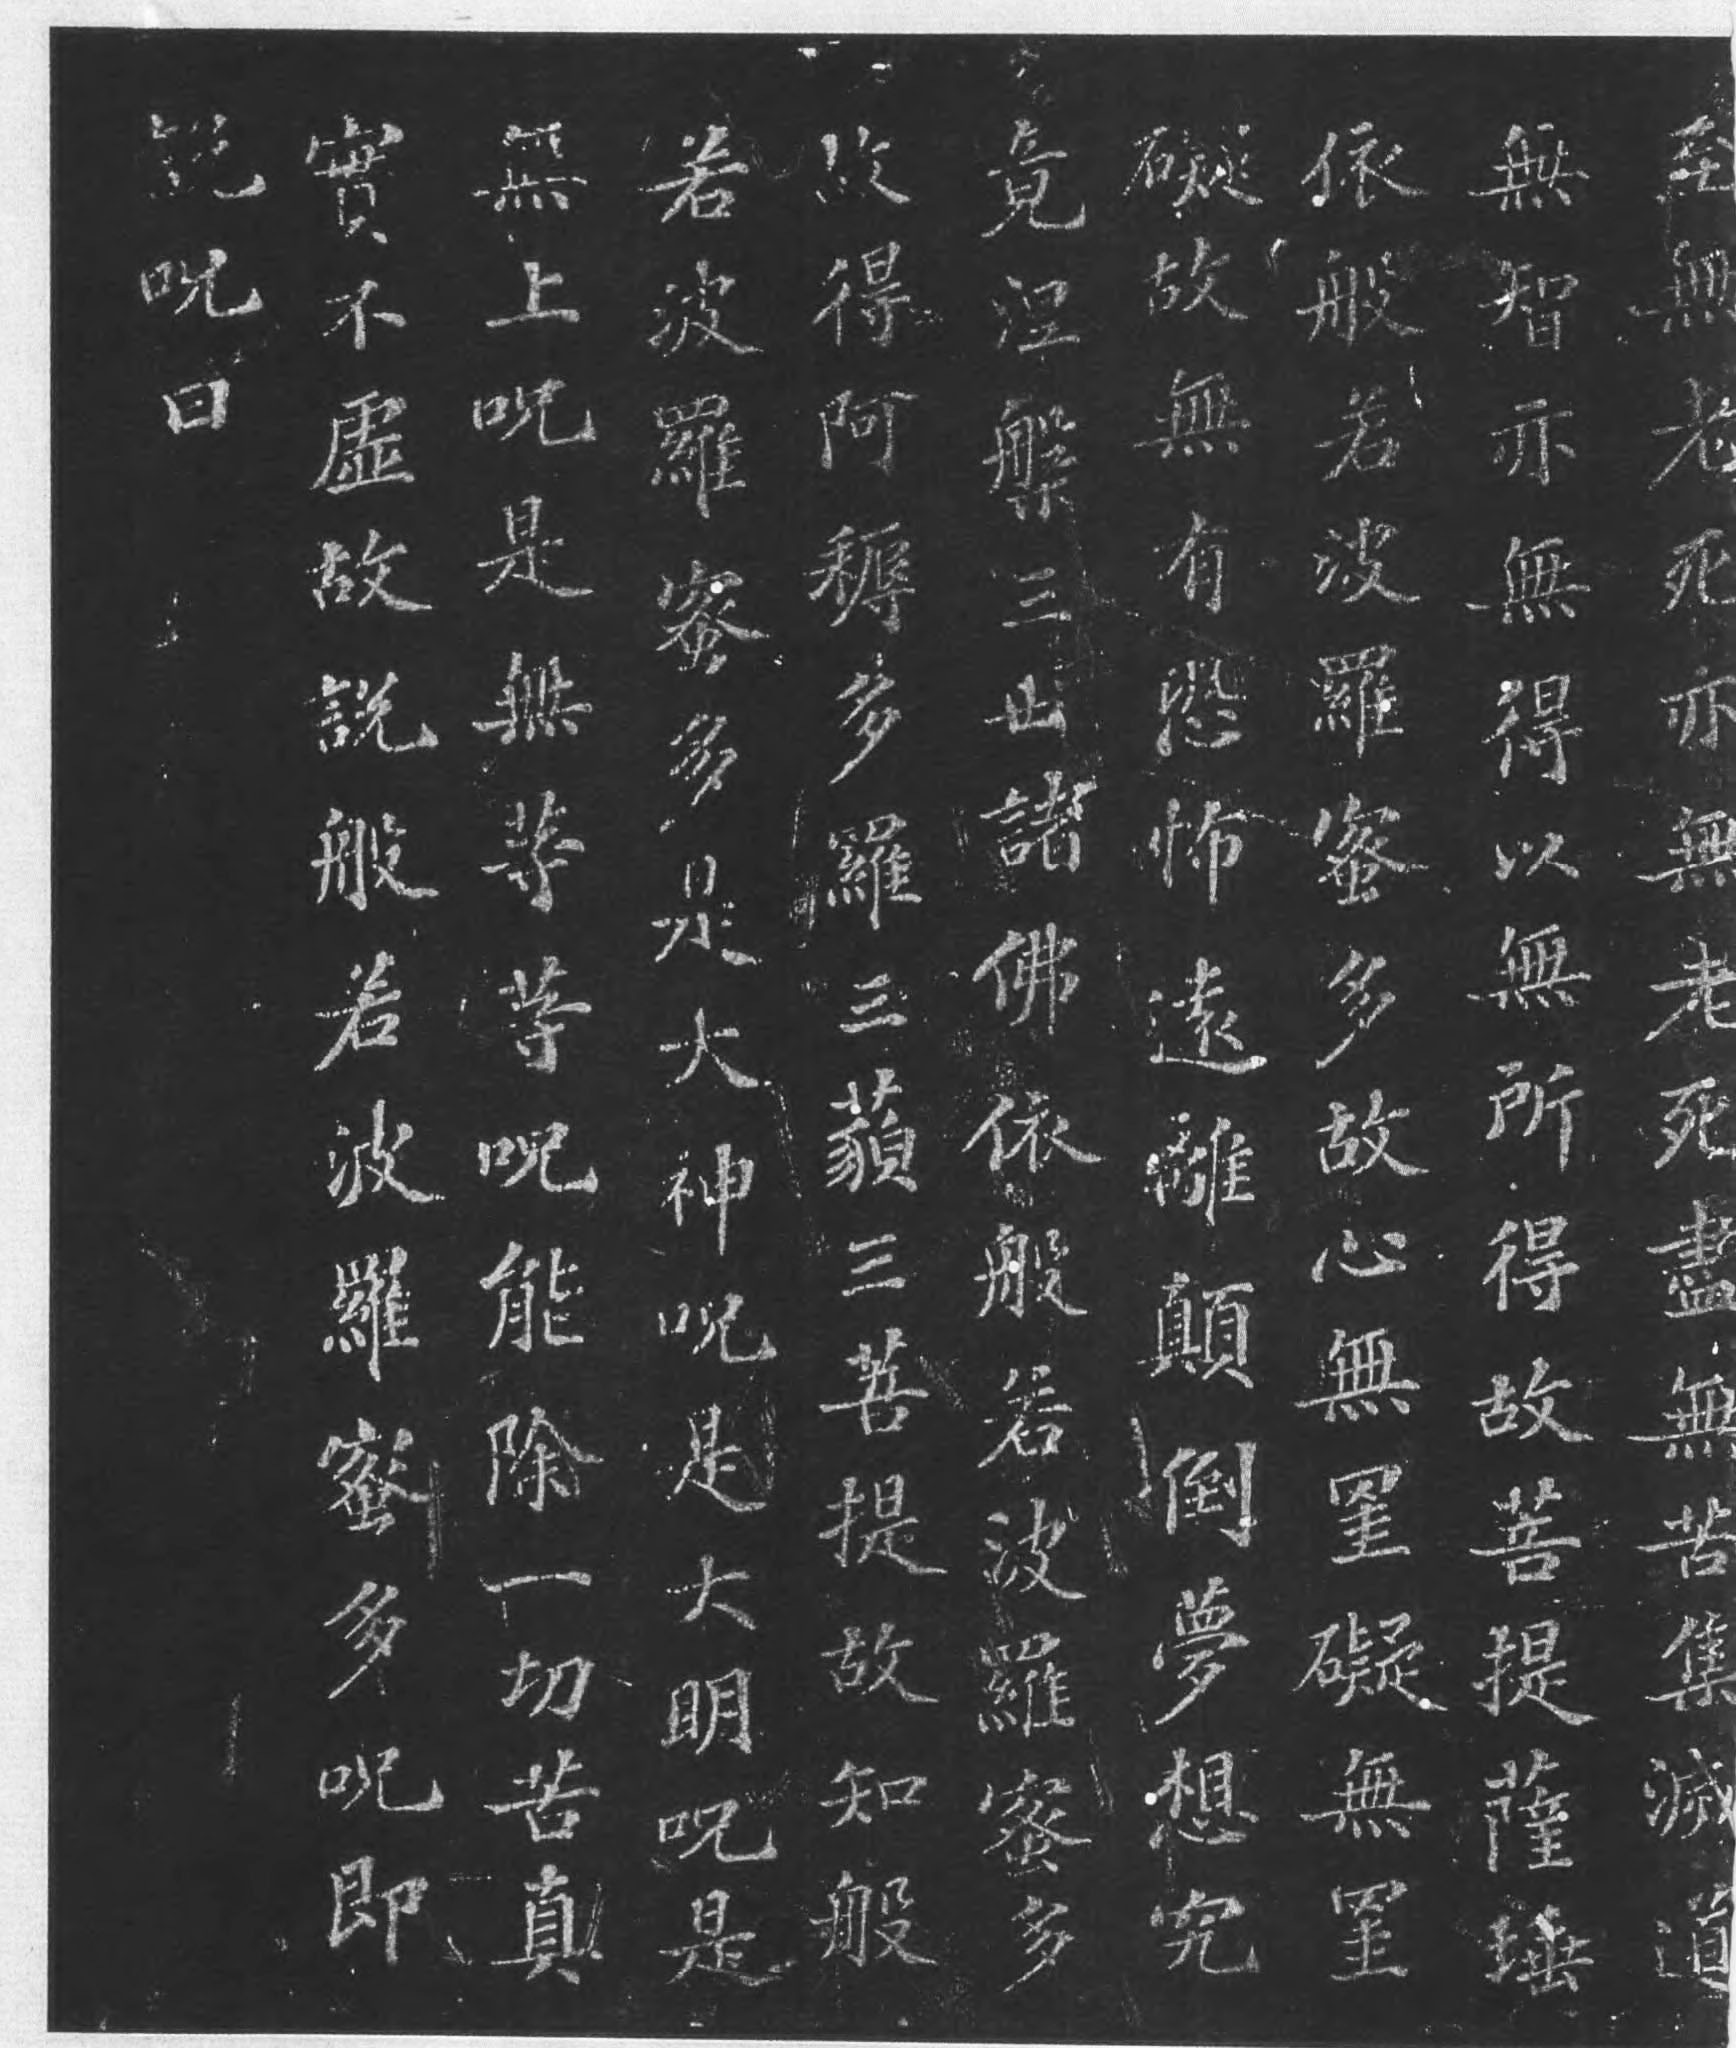 至無老死亦無老死盡無苦集滅道
無智亦無得以無所得故菩提薩埵
依般若波羅蜜多故心無罣礙無罣
礙故無有恐怖遠離顛倒夢想究
竟涅槃三世諸佛依般若波羅蜜多
故得阿耨多羅三藐三菩提故知般
若波羅蜜多是大神呪是大明呪是
無上呪是無等等呪能除一切苦真
實不虛故說般若波羅蜜多呪即
說呪曰